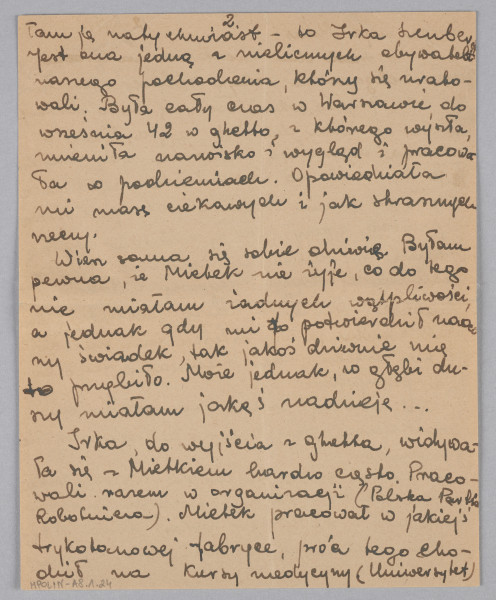 2
łam ją natychmiast – to Irka
Jest ona jedną z nielicznych obywateli
naszego pochodzenia, którzy się urato-
wali. Była cały czas w Warszawie do
września 42 w ghetto, z którego wyszła,
zmieniła nazwisko i wygląd i pracowa
ła w podziemiach. Opowiedziała
mi masę ciekawych i jak strasznych
rzeczy.
Wiesz sama się sobie dziwię. Byłam
pewna, że Mietek nie żyje, co do tego
nie miałam żadnych wątpliwości,
a jednak gdy mi to potwierdził nao
ny świadek, tak jakoś dziwnie mię
to przybiło. Może jednak, w głębi du-
szy miałam jakąś nadzieję ...
Irka, do wyjścia z ghetta, widywa-
ła się z Mietkiem bardzo często. Praco-
wali razem w organizacji (Polska Partja
Robotnicza). Mietek pracował w jakiejś
trykotarzowej fabryce, próćz tego cho-
dził na kursy medyczny (Uniwersytet)
MPOLIN-A8.1.24